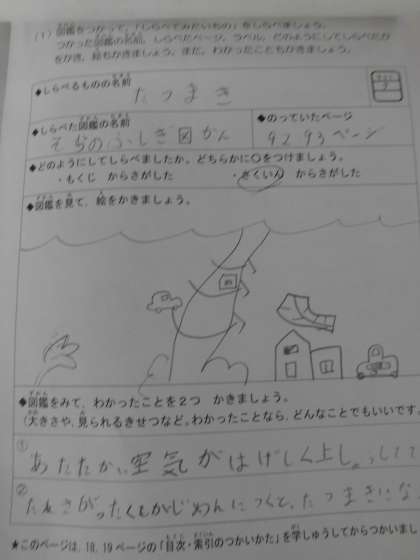 (1) 図鑑をつかって、「しらべてみたいもの」をしらべましょう。
つかった図鑑の名前、しらべたページ、ラベル、どのようにしてしらべたか
をかき、絵もかきましょう。また、わかったこともかきましょう。
◆しらべるものの名前
たつまき
◆しらべた図鑑の名前
そらのふしぎ図かん
◆のっていたページ
92 93ページ
◆どのようにしてしらべましたか。どちらかに○をつけましょう。
・もくじ からさがした ・さくいん からさがした
◆図鑑を見て、絵をかきましょう。
◆図鑑をみて、わかったことを2つ かきましょう。
(大きさや、見られるきせつなど。わかったことなら、どんなことでもいいです。
①
あたたかい空気がはげしく上しょうして
②
たれさがったくもがじめんにつくと、たつまきにな
★このページは、18、19ページの「目次・索引のつかいかた」を学しゅうしてからつかいまし